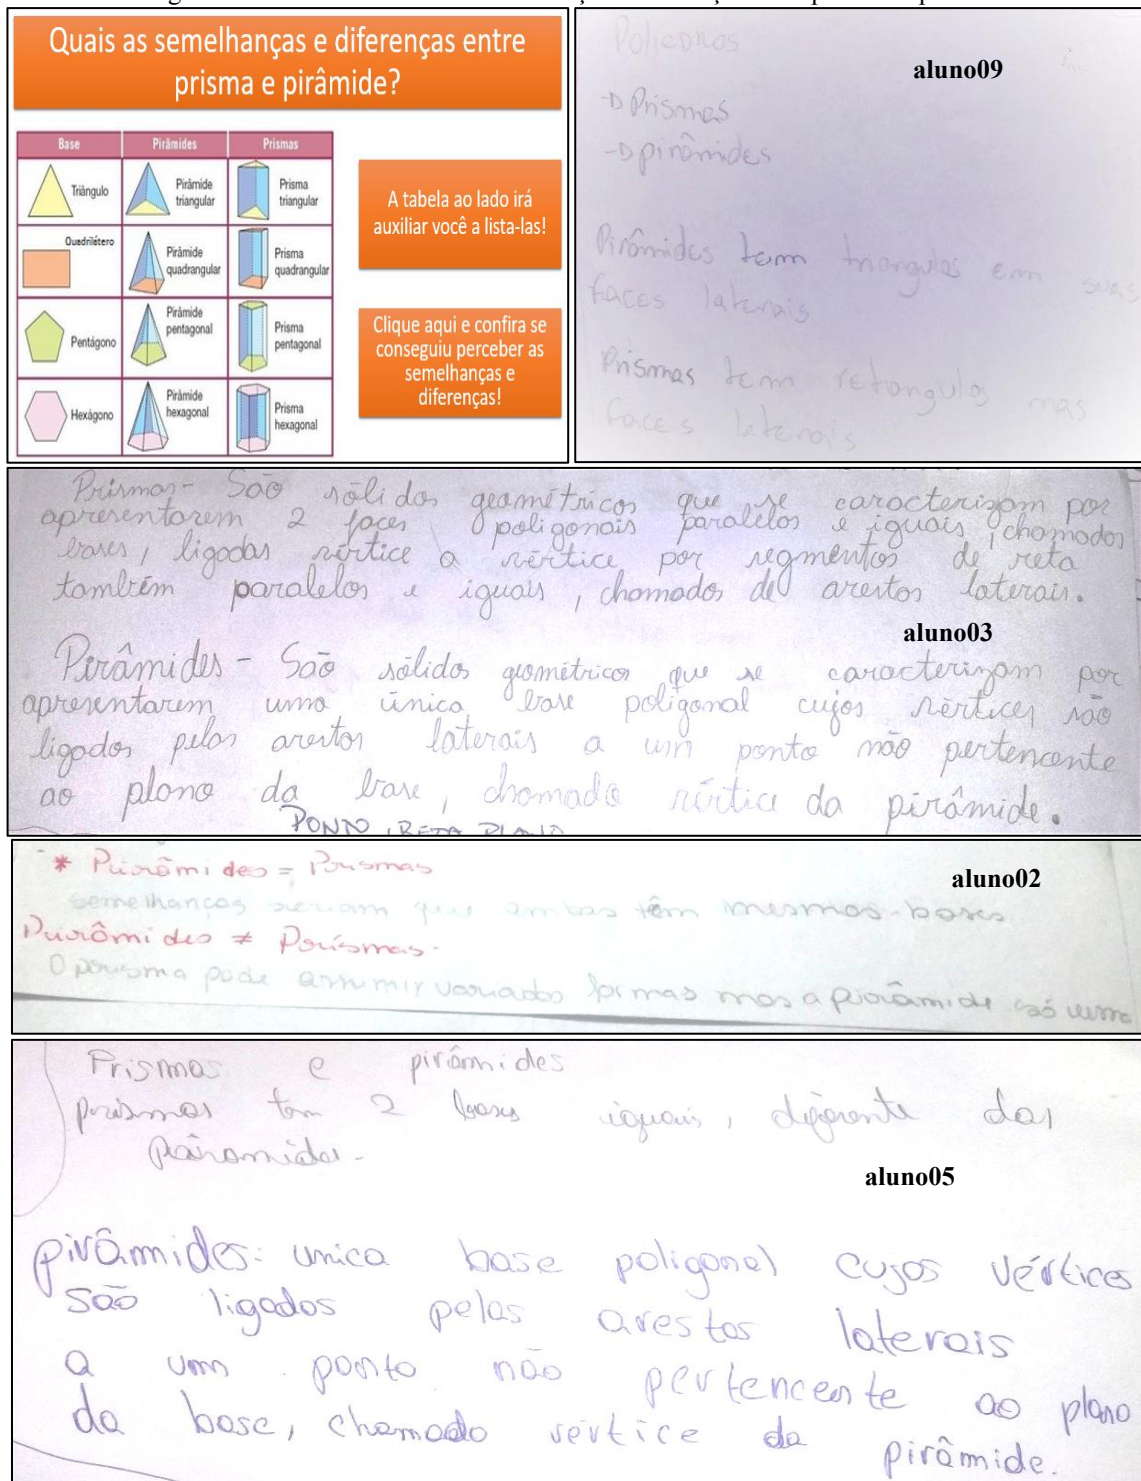 Quais as semelhanças e diferenças entre
prisma e pirâmide?
Base Pirâmides Prismas
Triângulo Pirâmide triangular Prisma triangular
Quadrilátero Pirâmide quadrangular Prisma quadrangular
Pentágono Pirâmide pentagonal Prisma pentagonal
Hexágono Pirâmide hexagonal Prisma hexagonal
A tabela ao lado irá
auxiliar você a lista-las!
Clique aqui e confira se
conseguiu perceber as
semelhanças e
diferenças!
aluno09
Prismas
pirâmides
Pirâmides tem triangulos em suas
faces laterais
Prismas tem retangulos nas
faces laterais
Prismas - São sólidos geométricos que se caracterizam por
apresentarem 2 faces poligonais paralelas e iguais, chamadas
bases, ligadas vértice a vértice por segmentos de reta
também paralelos e iguais, chamados de arestas laterais.
aluno03
Pirâmides - São sólidos geométricos que se caracterizam por
apresentarem uma única base poligonal cujos vértices são
ligados pelas arestas laterais a um ponto não pertencente
ao plano da base, chamado vértice da pirâmide.
PONTO, RETA PLANO
* Pirâmides = Prismas
aluno02
semelhanças seriam que ambas têm mesmas bases
Pirâmides ≠ Prismas.
O prisma pode assumir variadas formas mas a pirâmide só uma
Prismas e pirâmides
prismas tem 2 bases iguais, diferente das
pirâmides.
aluno05
pirâmides: unica base poligonal cujos vértices
são ligados pelas arestas laterais
a um ponto não pertencente ao plano
da base, chamado vértice da pirâmide.